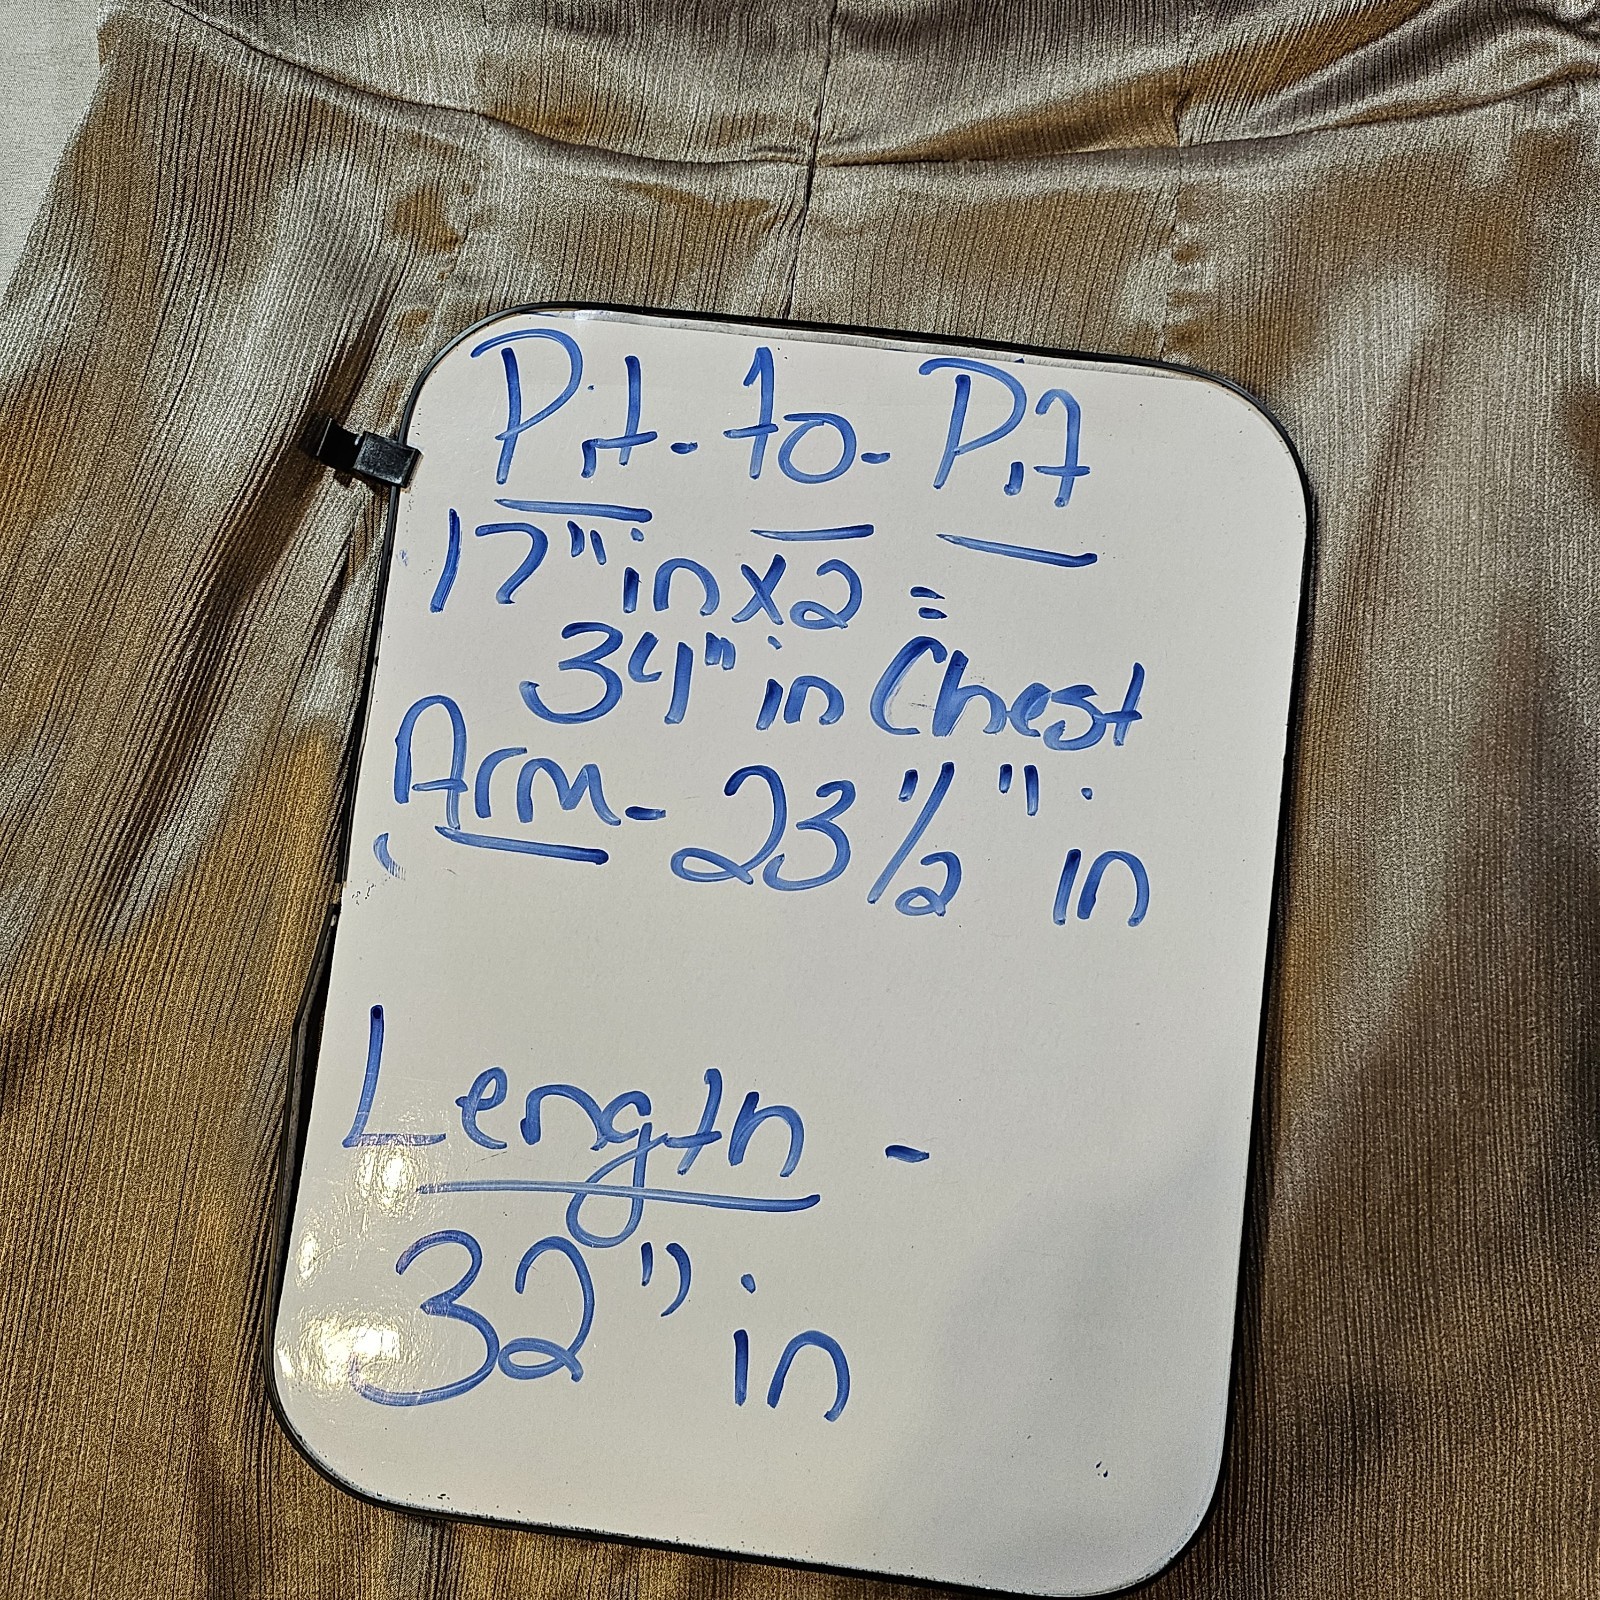 Pit-to-Pit
17" in x2 =
34" in Chest
Arm- 23 1/2" in
Length -
32" in